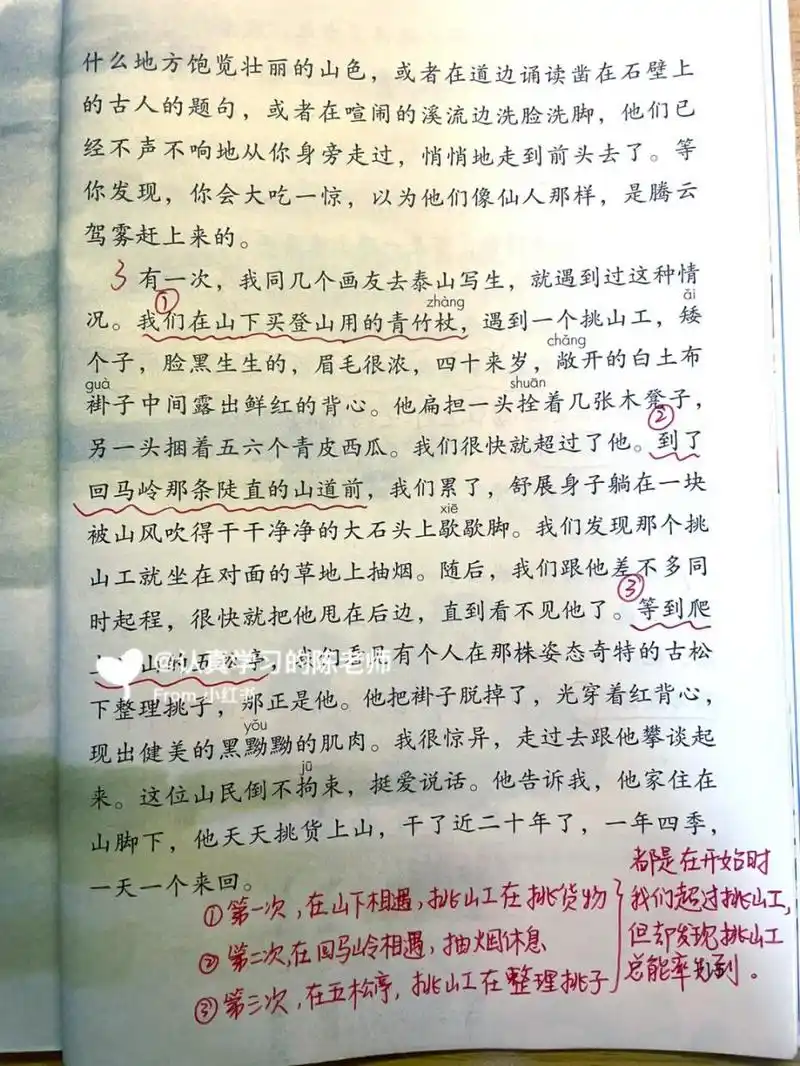 什么地方饱览壮丽的山色，或者在道边诵读凿在石壁上
的古人的题句，或者在喧闹的溪流边洗脸洗脚，他们已
经不声不响地从你身旁走过，悄悄地走到前头去了。等
你发现，你会大吃一惊，以为他们像仙人那样，是腾云
驾雾赶上来的。
3 有一次，我同几个画友去泰山写生，就遇到过这种情
① zhàng ǎi
况。我们在山下买登山用的青竹杖，遇到一个挑山工，矮
chǎng
个子，脸黑生生的，眉毛很浓，四十来岁，敞开的白土布
guà shuān
褂子中间露出鲜红的背心。他扁担一头拴着几张木凳子，
②
另一头捆着五六个青皮西瓜。我们很快就超过了他。到了
回马岭那条陡直的山道前，我们累了，舒展身子躺在一块
xiē
被山风吹得干干净净的大石头上歇歇脚。我们发现那个挑
山工就坐在对面的草地上抽烟。随后，我们跟他差不多同
③
时起程，很快就把他甩在后边，直到看不见他了。等到爬
山的五松亭，我们看见有个人在那株姿态奇特的古松
@认真学习的陈老师
From 小红书
下整理挑子，那正是他。他把褂子脱掉了，光穿着红背心，
yǒu
现出健美的黑黝黝的肌肉。我很惊异，走过去跟他攀谈起
jū
来。这位山民倒不拘束，挺爱说话。他告诉我，他家住在
山脚下，他天天挑货上山，干了近二十年了，一年四季，
一天一个来回。
①第一次，在山下相遇，挑山工在挑货物
②第二次，在回马岭相遇，抽烟休息
③第三次，在五松亭，挑山工在整理挑子
都是在开始时
我们超过挑山工，
但却发现挑山工
总能率先到。